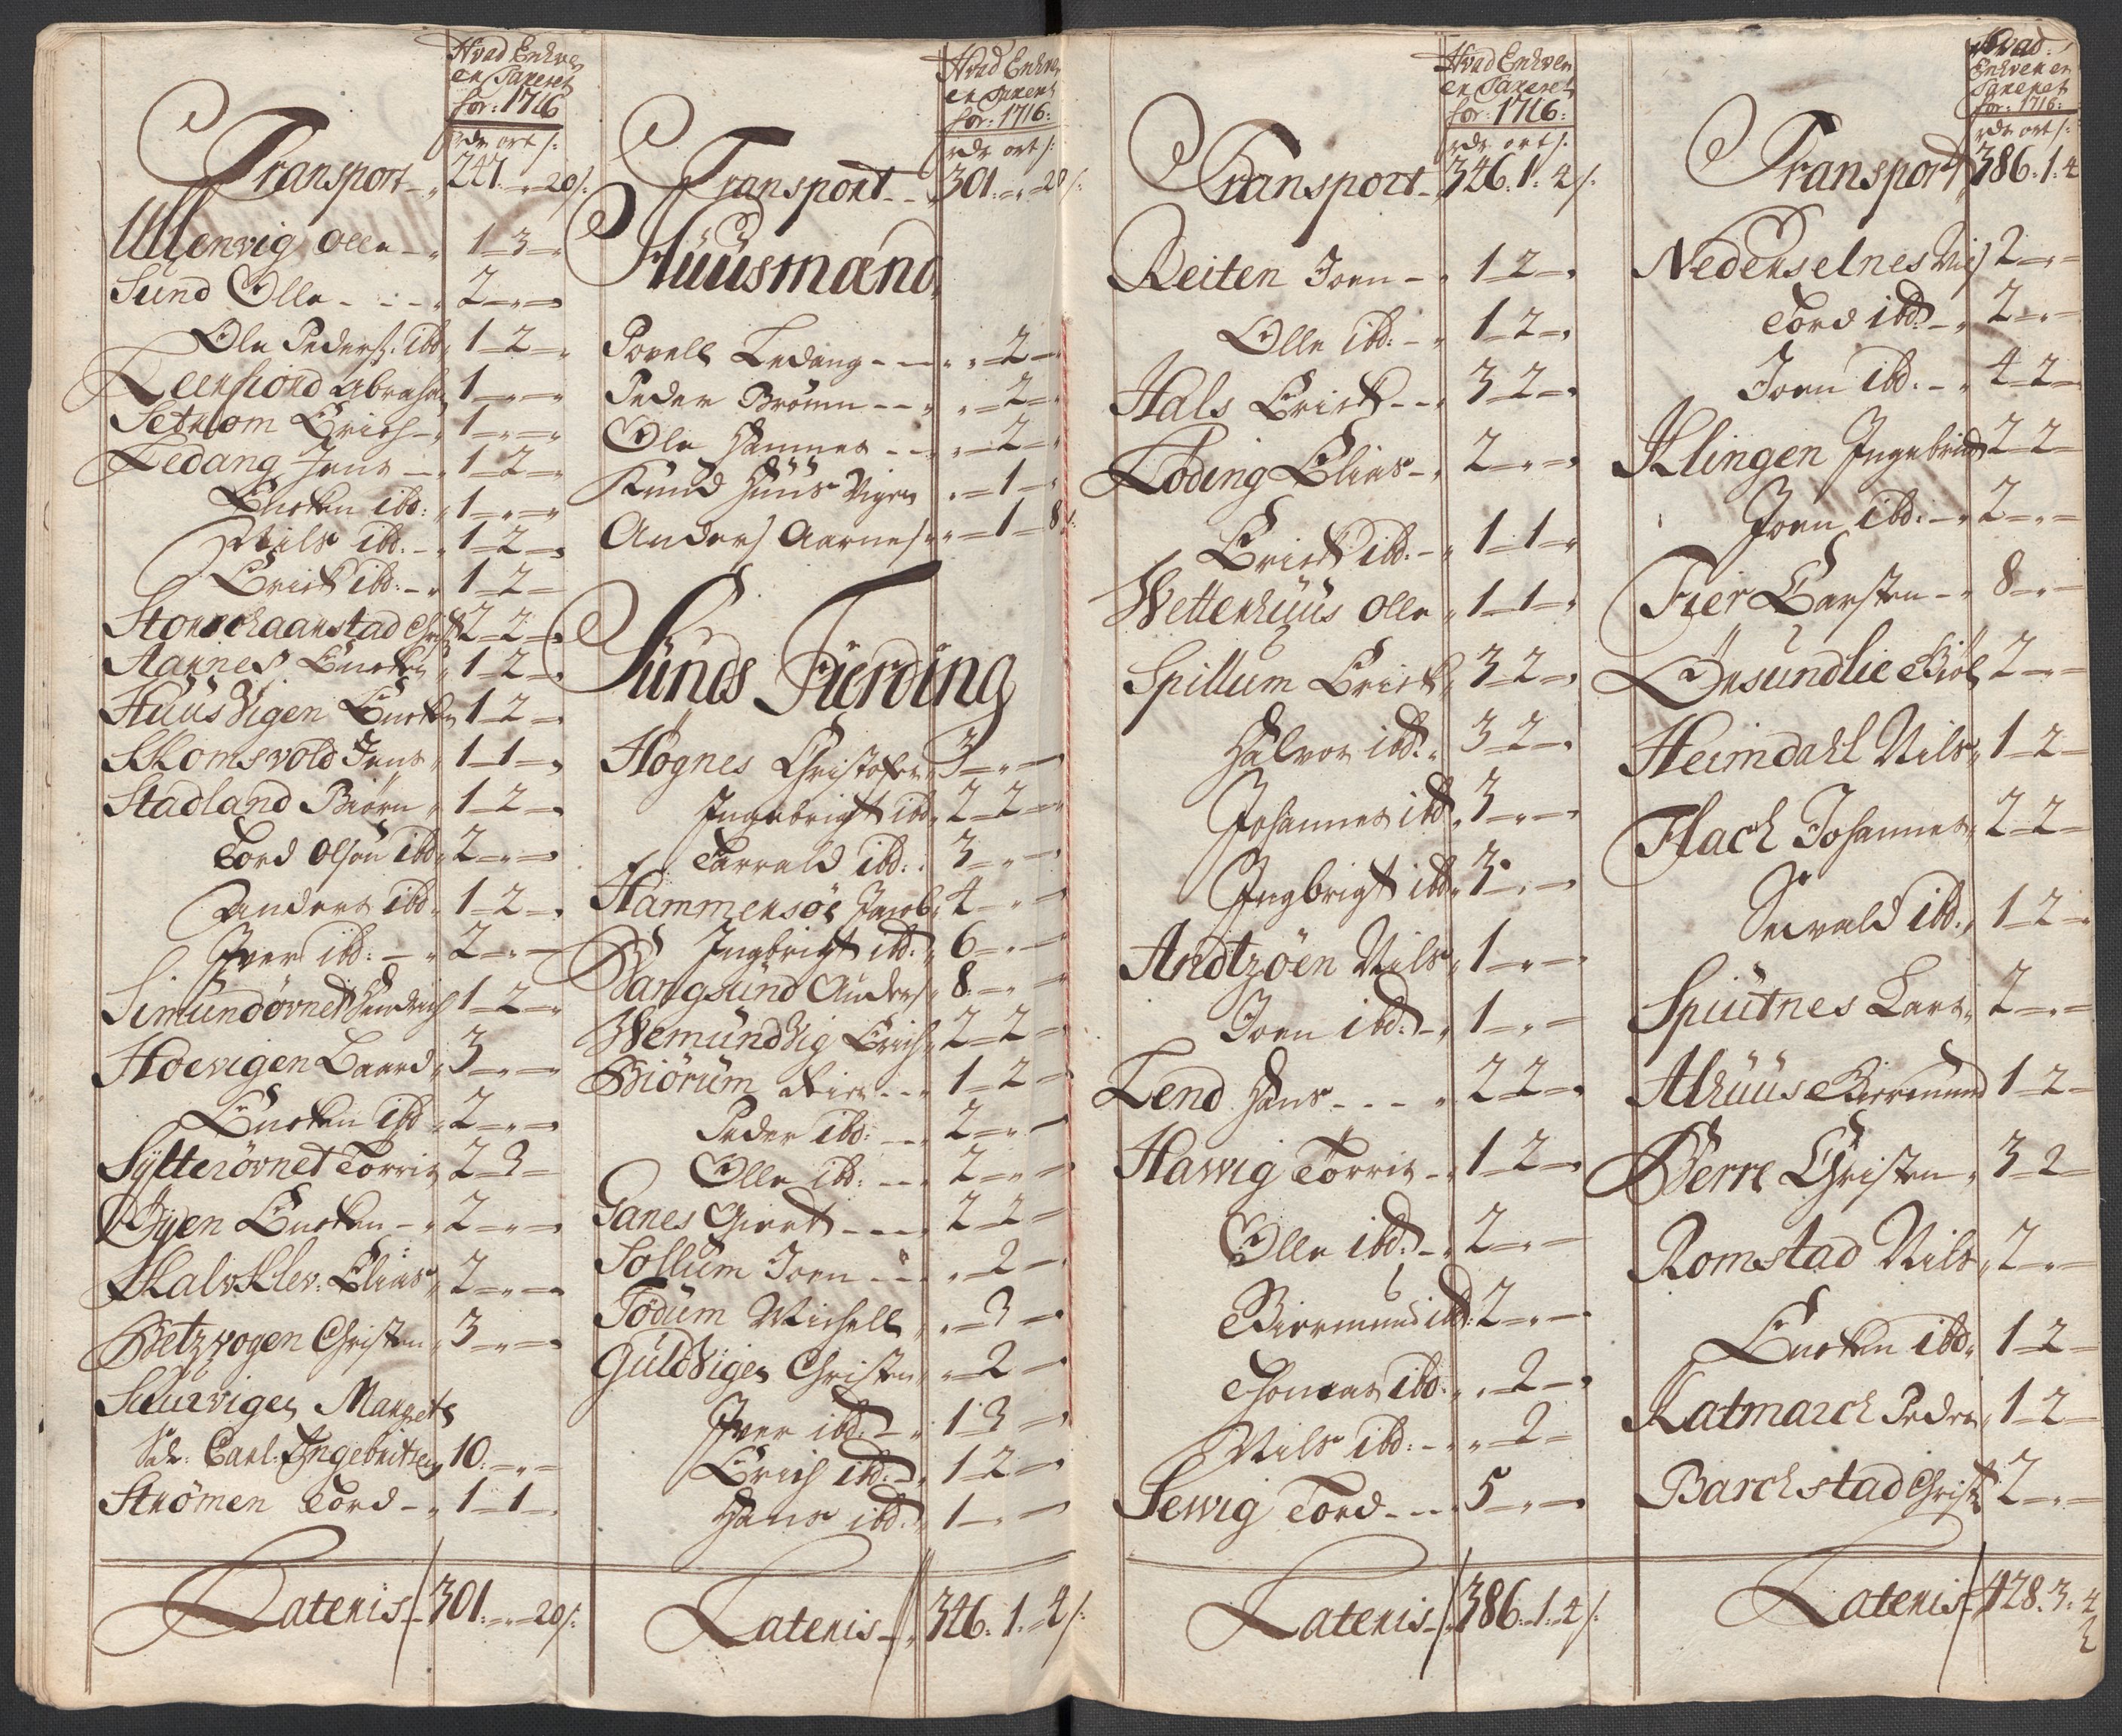 Hvad Enhver
er Taxeret
for: 1716
rdr ort s:
Transport 247 - 20 s:
Ullenvig Olle - 1 - 3 -
Sund Olle - 2 - -
Ole Peders: ibd 1 - 2 -
Leerfiord Abraha 1 - -
Setnom Erich - 1 - -
Ledang Jens - 1 - 2 -
Enoken ibd: 1 - -
Nils ibd. - 1 - 2 -
Erick ibd: - 1 - 2 -
2 - 2 -
Aarnes Enoken 1 - 2 -
Huusvigen Enoken 1 - 2 -
Skomsvold Jens 1 - 1 -
Stadland Biörn 1 - 2 -
Tord Olsøn ibd 2 - -
Anders ibd 1 - 2 -
Iver ibd: - 2 - -
Simundøvnet Hendrich 1 - 2 -
Hoevigen Baard 3 - -
Enoken ibd 2 - -
Sÿlterövnet Torris 2 - 3 -
Öÿen Enoken - 2 - -
Kalvklev: Elias 2 - -
Betzvogen Christen 3 - -
Margets
Sal: Carl: Ingebritsen 10: - -
Strömen Tord - 1 - 1 -
Lateris 301: - 20 s:
Hvad Enhver
er Taxeret
for: 1716:
rdr ort s:
Transport - 301: - 20 s:
Huusmænd
Povell Ledang - - 2 -
Peder Brönn - - 2 -
Ole Hamnes - - 2 -
Knud Huus Vigen - 1 -
Anders Aarnes - 1 - 8 s:
Sunds Fierding
Högnes Christofer 3 - -
Ingebrigt ibd 2 - 2 -
Tarrald ibd: 3 - -
Hammersøe Jacob 4 - -
Ingbrigt ibd. 6 - -
Bangsund Anders 8 - -
Wemundvig Erich 2 - 2 -
Biörum 1 - 2 -
Peder ibd: - 2 - -
Olle ibd: - 2 - -
Ganes Giert - 2 - 2 -
Sollum Joen - - 2 -
Tödum Michell - 3 -
Guldvigen Christen - 2 -
Iver ibd: - 1 - 3 -
Erich ibd: - 1 - 2 -
Hans ibd. 1 - -
Lateris 346: 1: 4 s:
Hvad Enhver
er Taxeret
for: 1716:
rdr ort s:
Transport 346: 1: 4 s:
Reiten Joen - 1 - 2 -
Olle ibd: - 1 - 2 -
Hals Erick - 3 - 2 -
Löding Elias - 2 - -
Erick ibd: - 1 - 1 -
Wetterhuus Olle 1 - 1 -
Spillum Erick 3 - 2 -
Halvor ibd: 3 - 2 -
Johannes ibd 3 - -
Ingbrigt ibd 3 - -
Andtzöen Nils 1 - -
Joen ibd: - 1 - -
Lend Hans - - - 2 - 2 -
Havvig Torris - 1 - 2 -
Olle ibd: - 2 - -
Biermund ibd: 2 - -
Thomas ibd: - 2 -
Nils ibd: - - 2 -
Sevvig Tord - - 5 - -
Lateris 386: 1: 4 s:
Hvad
Enhver er
Taxeret
for: 1716:
rdr ort s:
Transport 386: 1: 4
Nederselnes Nils 2 - -
Tord ibd: - 2 - -
Joen ibd: - 4 - 2 -
Klingen Ingebrict 2 - 2 -
Joen ibd: - 2 - -
Fier Carsten - 8 - -
Öresundlie 2 - -
Heimdahl Nils 1 - 2 -
Flach Johannes 2 - 2 -
Sivald ibd. 1 - 2 -
Spiutnes Lars 2 - -
Alhuus Biermund 1 - 2 -
Berre Christen 3 - 2 -
Romstad Nils 2 - -
Enoken ibd 1 - 2 -
Katmarch Peder 1 - 2 -
Barchstad Christ 2 - -
Lateris 428: 3: 4